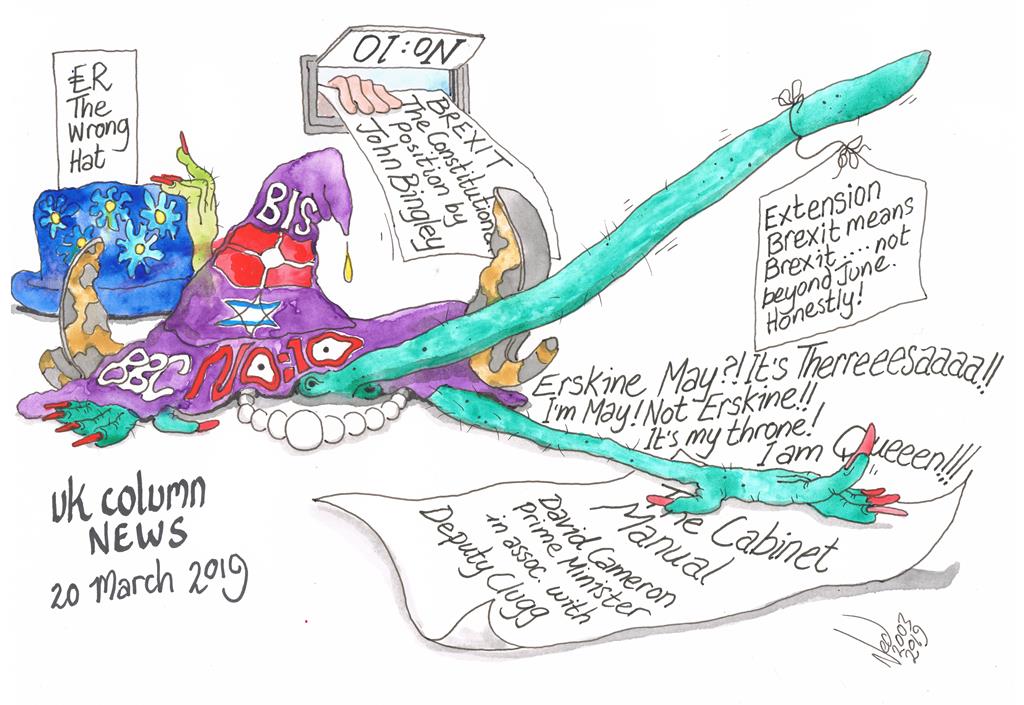 ER
The
Wrong
Hat
No:10
BREXIT
The Constitutional
Position by
John Bingley
BIS
BBC
NO:10
Extension
Brexit means
Brexit....not
beyond June.
Honestly!
Erskine May?! It's Therreeesaaaa!!
I'm May! Not Erskine!!
It's my throne!
I am Queeen!!!!
The Cabinet
Manual
David Cameron
Prime Minister
in assoc. with
Deputy Clugg
UK COLUMN
NEWS
20 March 2019
2003
2019